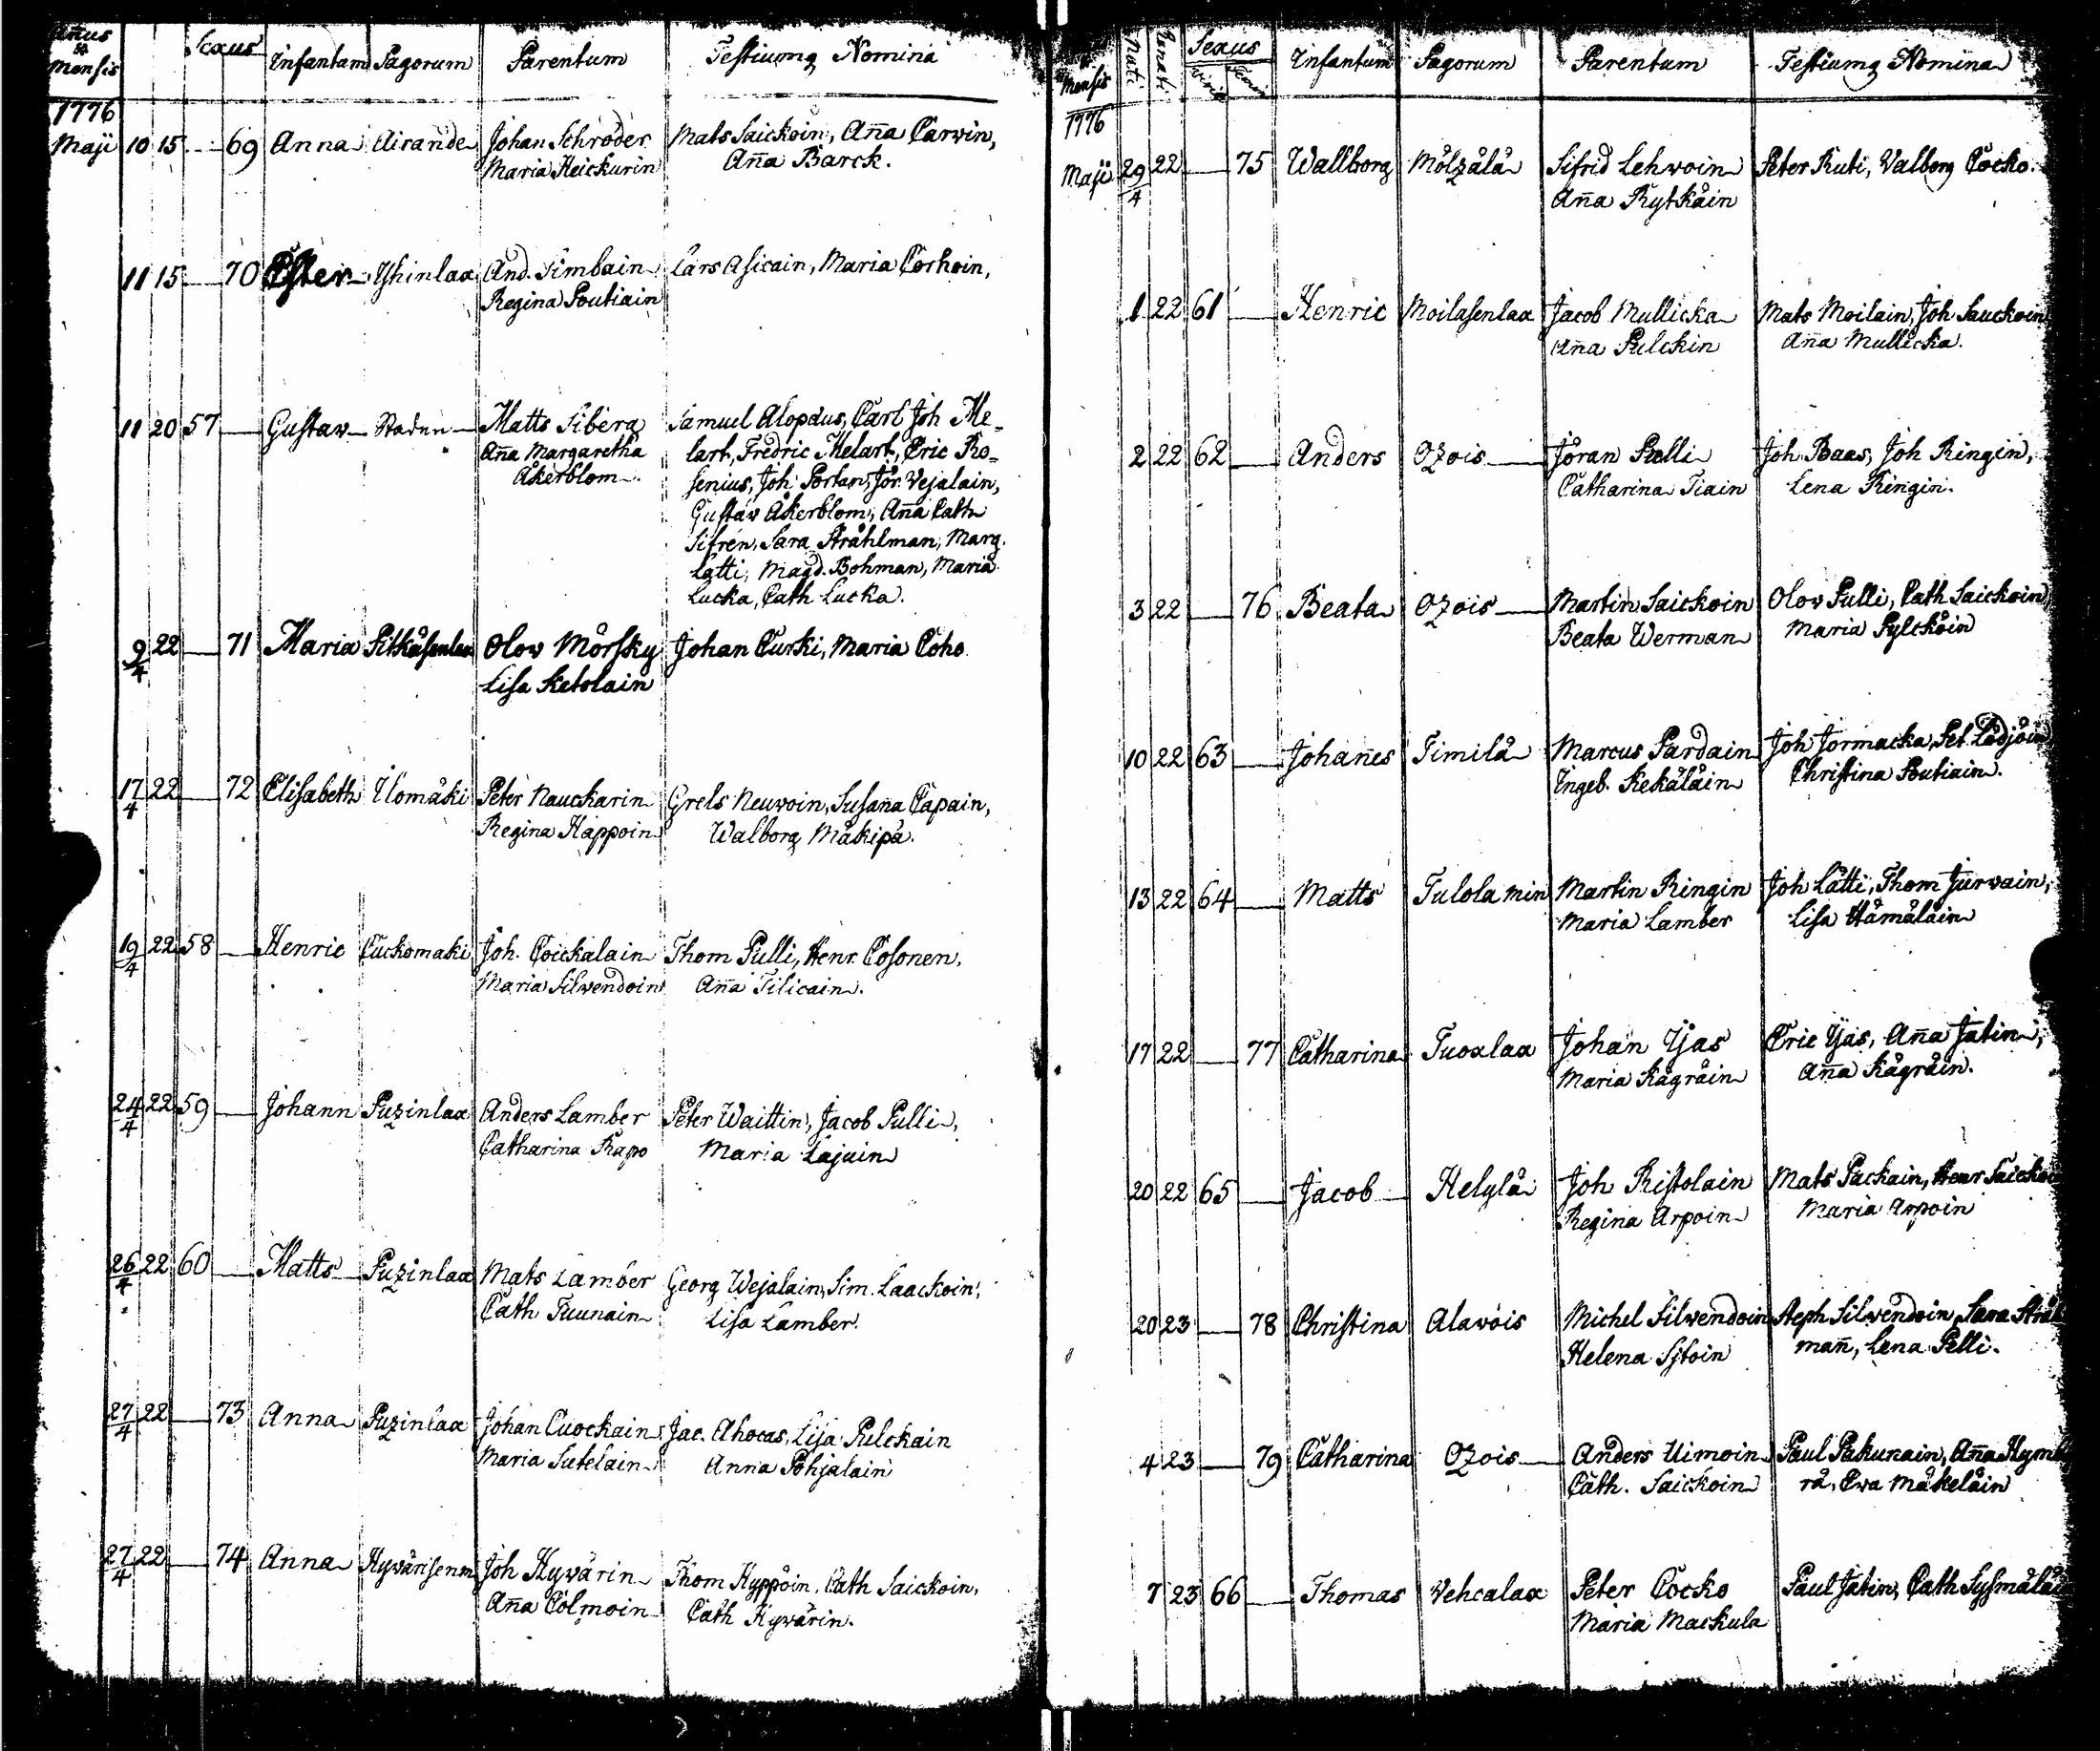 Annus & Mensis Sexus Infantum Pagorum Parentum Testiumq Nomina
1776
Maji 10 15 — 69 Anna Airande Johan Schröder Mats Saickoin, Aña Carwin,
Maria Heickurin Aña Barck.
11 15 — 70 Ester Yhinlax And. Simbain Lars Asicain, Maria Corhoin,
Regina Poutiain
11 20 57 — Gustaw Staden Matts Siberg Samuel Alopæus, Carl Joh Me-
Aña Margaretha lart, Fredric Melart, Eric Ro-
Åkerblom. senius, Joh: Portan, Jör. Vejalain,
Gustav Åkerblom, Aña Cath
Sifrén, Sara Stråhlman, Marg.
Lätti, Magd. Bohman, Maria
Lucka, Cath Lucka.
9/4 22 — 71 Maria Pitkäsenlax Olow Mörsky Johan Curki, Maria Coho
Lisa Ketolain
17/4 22 — 72 Elisabeth Ilomäki Peter Nauckarin Grels Neuvoin, Susana Capain,
Regina Happoin Walborg Mäkipä.
19/4 22 58 — Henric Cuckomaki Joh. Coickalain Thom Pulli, Henr. Cosonen,
Maria Silwendoin Aña Tilicain.
24/4 22 59 — Johann Puzinlax Anders Lamber Peter Waittin, Jacob Pulli,
Catharina Rapo Maria Lajuin
26/4 22 60 — Matts Puzinlax Mats Lamber Georg Wejalain, Sim. Laackoin,
Cath Tuunain Lisa Lamber.
27/4 22 — 73 Anna Puzinlax Johan Cuockain Jac. Ahocas, Lisa Pulckain
Maria Sutelain Anna Pohjalain
27/4 22 — 74 Anna Hywärisenm Joh Hywärin Thom Hyppöin, Cath Saickoin,
Aña Colmoin Cath Hywärin.
Mensis Nati Renati Sexus Infantum Pagorum Parentum Testiumq Nomina
1776
Maji 29/4 22 — 75 Wallborg Mölzälä Sifrid Lehwoin Peter Ruti, Valborg Cocko.
Aña Rytkäin
1 22 61 — Henric Moilasenlax Jacob Mullicka Mats Moilain, Joh Sauckoin
Aña Pulckin Aña Mullicka.
2 22 62 — Anders Ozois Jöran Pelli Joh Paas, Joh Ringin,
Catharina Tiain Lena Ringin.
3 22 — 76 Beata Ozois Martin Saickoin Olov Pulli, Cath Saickoin,
Beata Werman Maria Pylckäin
10 22 63 — Johañes Timilä Marcus Pardain Joh Jormacka, Pet. Lädjöin
Ingeb. Kekäläin Christina Poutiain.
13 22 64 — Matts Tulola min Martin Ringin Joh Lätti, Thom Jürwain,
Maria Lamber Lisa Hämäläin
17 22 — 77 Catharina Tuoxlax Johan Yjas Eric Yjas, Aña Jatin,
Maria Kägräin Aña Kägräin.
20 22 65 — Jacob Helylä Joh Ristolain Mats Packain, Henr Saickoi
Regina Arpoin Maria Arpoin
20 23 — 78 Christina Alavois Michel Silwendoin Steph Silvendoin, Sara Strål
Helena Sjtoin mañ, Lena Pelli.
4 23 — 79 Catharina Ozois Anders Uimoin Paul Pakunain, Aña Kymb
Cath. Saickoin rä, Ewa Mäkeläin
7 23 66 — Thomas Vehcalax Peter Cocko Paul Jatin, Cath Sysmäläi
Maria Mackula